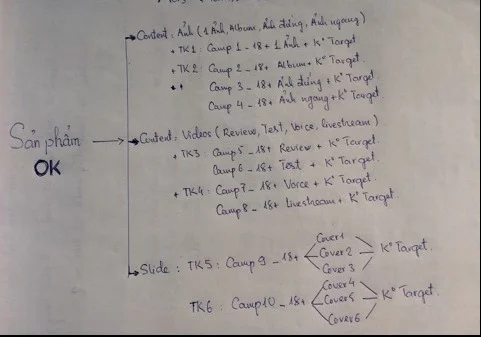 Content: Ảnh (1 Ảnh, Album, Ảnh đứng, Ảnh ngang)
+ TK1: Camp 1 - 18+ 1 Ảnh + K° Target
+ TK2: Camp 2 - 18+ Album + K° Target.
++ Camp 3 - 18+ Ảnh đứng + K° Target
Camp 4 - 18+ Ảnh ngang + K° Target
Sản phẩm
OK
Content: Videos (Review, Test, Voice, livestream)
+ TK3: Camp 5 - 18+ Review + K° Target.
Camp 6 - 18+ Test + K° Target.
+ TK4: Camp 7 - 18+ Voice + K° Target.
Camp 8 - 18+ Livestream + K° Target.
Slide: TK5: Camp 9 - 18+ Cover 1 Cover 2 Cover 3 K° Target.
TK6: Camp 10 - 18+ Cover 4 Cover 5 Cover 6 K° Target.